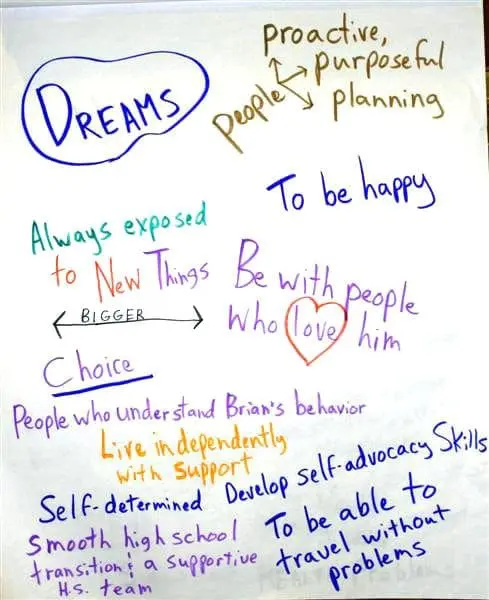 DREAMS
people
proactive,
purposeful
planning
To be happy
Always exposed
to New Things
BIGGER
Be with people
who love him
Choice
People who understand Brian's behavior
Live independently
with support
Self-determined
Develop self-advocacy Skills
Smooth high school
transition & a supportive
H.S. team
To be able to
travel without
problems